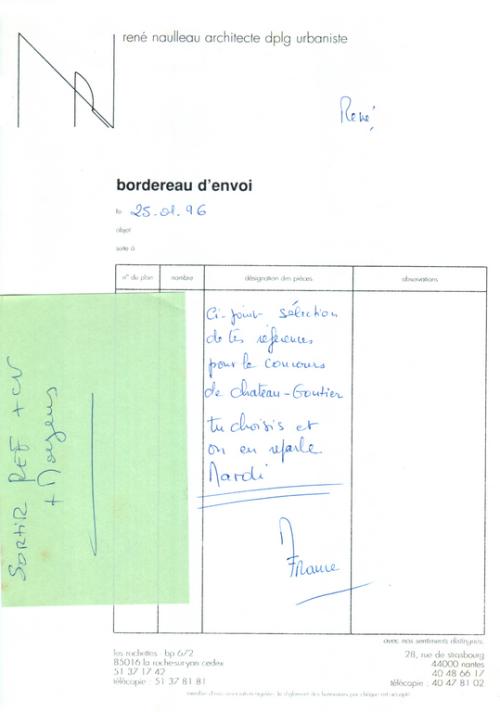 rené naulleau architecte dplg urbaniste
René
bordereau d'envoi
le 25.01.96
objet
suite à
n° du plan nombre désignation des pièces observations
Ci-joint sélection
de tes références
pour le concours
de Chateau-Gontier
tu choisis et
on en reparle
Mardi
France
SORTIR REF + CV
+ Moyens
avec nos sentiments distingués.
les rochettes - bp 672
85016 la roche-sur-yon cedex
51 37 17 42
télécopie : 51 37 81 81
28, rue de strasbourg
44000 nantes
40 48 66 17
télécopie : 40 47 81 02
membre d'une association agréée, le règlement des honoraires par chèque est accepté